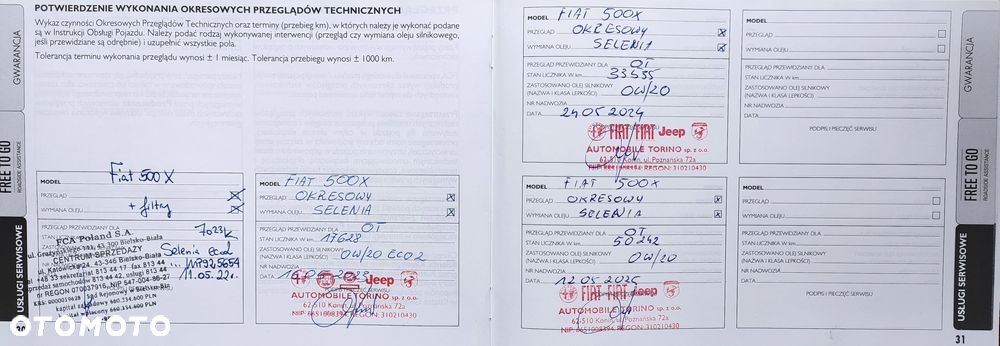 POTWIERDZENIE WYKONANIA OKRESOWYCH PRZEGLĄDÓW TECHNICZNYCH
Wykaz czynności Okresowych Przeglądów Technicznych oraz terminy (przebieg km), w których należy je wykonać podane
są w Instrukcji Obsługi Pojazdu. Należy podać rodzaj wykonywanej interwencji (przegląd czy wymiana oleju silnikowego,
jeśli przewidziane są odrębnie) i uzupełnić wszystkie pola.
Tolerancja terminu wykonania przeglądu wynosi ± 1 miesiąc. Tolerancja przebiegu wynosi ± 1000 km.
GWARANCJA
FREE TO GO
ROADSIDE ASSISTANCE
USŁUGI SERWISOWE
MODEL Fiat 500X
PRZEGLĄD X
WYMIANA OLEJU + filtry X
7023K
Selenia
11.05.22r.
FCA Poland S.A.
ul. Grażyńskiego 141, 43-300 Bielsko-Biała
CENTRUM SPRZEDAŻY
ul. Katowicka 24, 43-346 Bielsko-Biała
+48 33 sekretariat 813 44 17 fax 813 44
sprzedaż samochodów 813 44 42 usługi 813 44
nr REGON 070037915, NIP 547-004-86-27
MODEL FIAT 500X
PRZEGLĄD OKRESOWY X
WYMIANA OLEJU SELENIA X
PRZEGLĄD PRZEWIDZIANY DLA OT
STAN LICZNIKA W km 17628
ZASTOSOWANO OLEJ SILNIKOWY
(NAZWA I KLASA LEPKOŚCI) 0W/20 ECO2
NR NADWOZIA
DATA
Jeep
AUTOMOBILE TORINO sp. z o.o.
62-510 Konin, ul. Poznańska 72a
NIP 6651008394 REGON: 310210430
MODEL FIAT 500X
PRZEGLĄD OKRESOWY X
WYMIANA OLEJU SELENIA X
PRZEGLĄD PRZEWIDZIANY DLA OT
STAN LICZNIKA W km 33555
ZASTOSOWANO OLEJ SILNIKOWY
(NAZWA I KLASA LEPKOŚCI) 0W/20
NR NADWOZIA
DATA 24.05.2024
FIAT FIAT Jeep
AUTOMOBILE TORINO sp. z o.o.
62-510 Konin, ul. Poznańska 72a
REGON: 310210430
MODEL FIAT 500X
PRZEGLĄD OKRESOWY X
WYMIANA OLEJU SELENIA X
PRZEGLĄD PRZEWIDZIANY DLA OT
STAN LICZNIKA W km 50242
ZASTOSOWANO OLEJ SILNIKOWY
(NAZWA I KLASA LEPKOŚCI) 0W/20
NR NADWOZIA
DATA 12.05.2025
FIAT FIAT Jeep
AUTOMOBILE TORINO sp. z o.o.
62-510 Konin, ul. Poznańska 72a
NIP 6651008394 REGON: 310210430
MODEL
PRZEGLĄD
WYMIANA OLEJU
PRZEGLĄD PRZEWIDZIANY DLA
STAN LICZNIKA W km
ZASTOSOWANO OLEJ SILNIKOWY
(NAZWA I KLASA LEPKOŚCI)
NR NADWOZIA
DATA
PODPIS I PIECZĘĆ SERWISU
MODEL
PRZEGLĄD
WYMIANA OLEJU
PRZEGLĄD PRZEWIDZIANY DLA
STAN LICZNIKA W km
ZASTOSOWANO OLEJ SILNIKOWY
(NAZWA I KLASA LEPKOŚCI)
NR NADWOZIA
DATA
PODPIS I PIECZĘĆ SERWISU
GWARANCJA
FREE TO GO
ROADSIDE ASSISTANCE
USŁUGI SERWISOWE
31
OTOMOTO